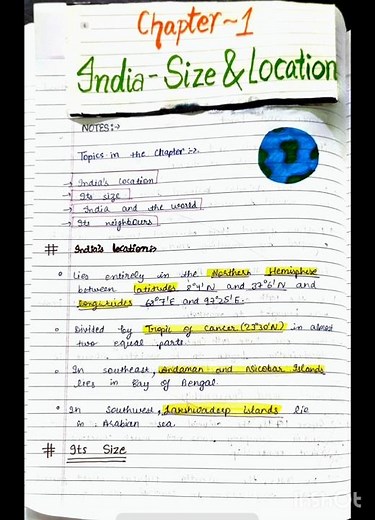 Chapter~1
India - Size & Location
NOTES:→
Topics in the Chapter :→
→ India's location
→ Its size
→ India and the world
→ Its neighbours
# India's location:
Lies entirely in the Northern Hemisphere
between latitudes 8°4'N and 37°6'N and
longitudes 68°7'E and 97°25'E.
Divided by Tropic of Cancer (23°30'N) in almost
two equal parts.
In southeast, Andaman and Nicobar Islands
lies in Bay of Bengal.
In Southwest, Lakshwadeep Islands lie
in Arabian sea.
# Its Size